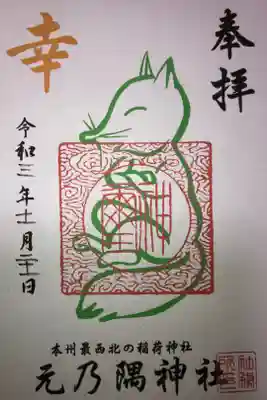 奉拝
幸
令和三年十一月二十一日
本州最西北の稲荷神社
元乃隅神社